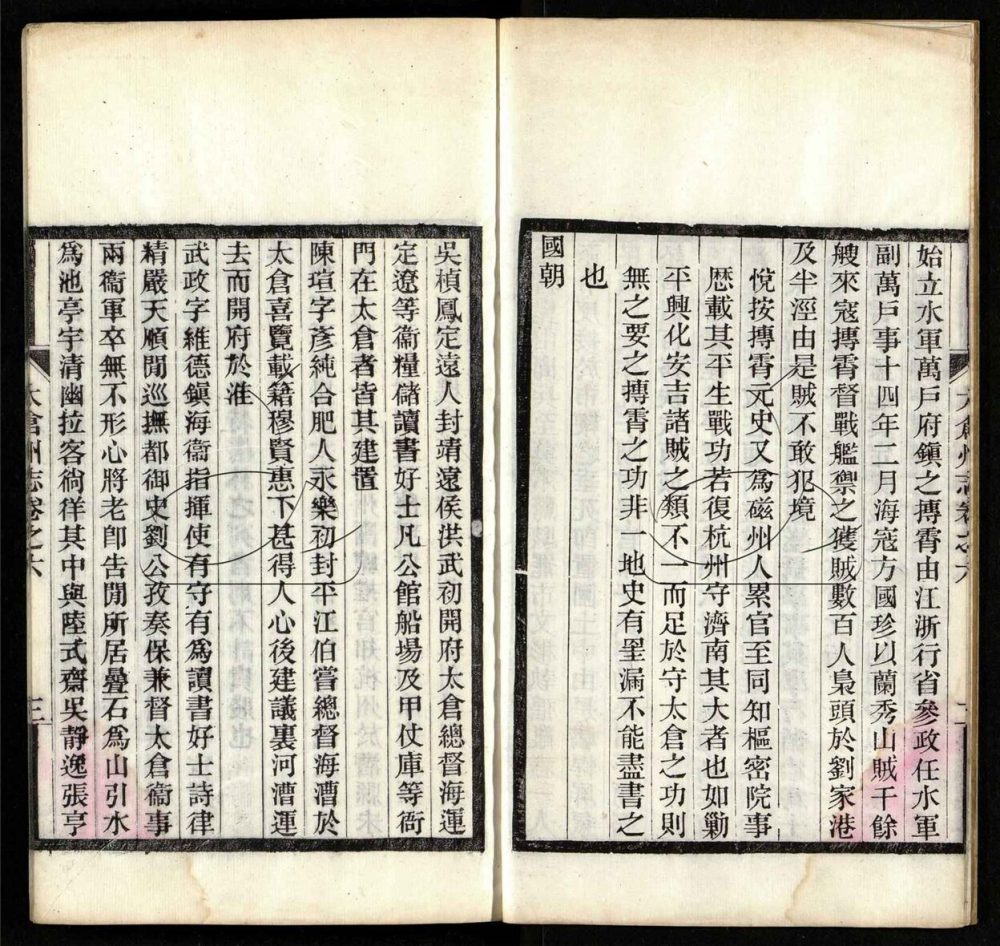 始立水軍萬戶府鎮之搏霄由江浙行省參政任水軍
副萬戶事十四年二月海寇方國珍以蘭秀山賊千餘
艘來寇搏霄督戰艦禦之獲賊數百人梟頭於劉家港
及半涇由是賊不敢犯境
悅按搏霄元史又爲磁州人累官至同知樞密院事
歷載其平生戰功若復杭州守濟南其大者也如勦
平興化安吉諸賊之類不一而足於守太倉之功則
無之要之搏霄之功非一地史有罣漏不能盡書之
也
國朝
吳楨鳳定遠人封靖遠侯洪武初開府太倉總督海運
定遼等衞糧儲讀書好士凡公館船場及甲仗庫等衙
門在太倉者皆其建置
陳瑄字彥純合肥人永樂初封平江伯嘗總督海漕於
太倉喜覽載籍穆賢惠下甚得人心後建議裏河漕運
去而開府於淮
武政字維德鎮海衞指揮使有守有爲讀書好士詩律
精嚴天順閒巡撫都御史劉公孜奏保兼督太倉衞事
兩衞軍卒無不形心將老卽告閒所居疊石爲山引水
爲池亭宇清幽拉客徜徉其中與陸式齋吳靜逸張亨
太倉州志卷之六
三